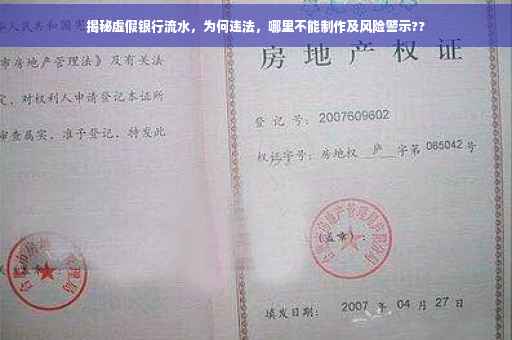 揭秘虚假银行流水，为何违法，哪里不能制作及风险警示??
人民共和国宪
市房地产管理法》及有关法
定，对权利人申请登记本证所
审查属实，准予登记，特发此
房地产权证
登记号：2007609602
权证字号：房地权 庐 字第 085042 号
（盖章）：
填发日期：2007 年 04 月 27 日